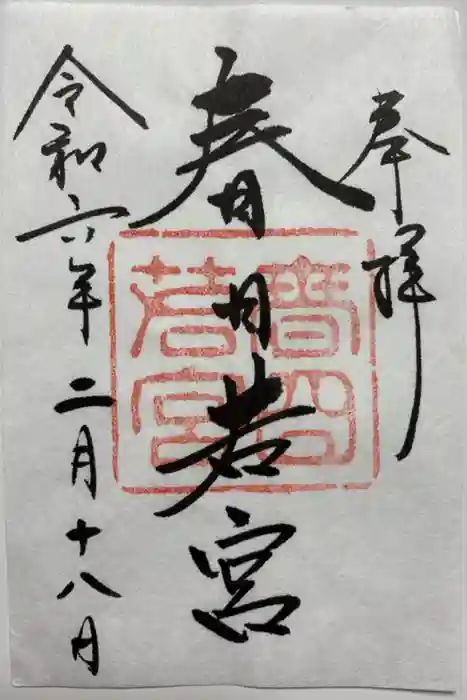 奉拝
春日若宮
令和六年二月十八日
春日
若宮